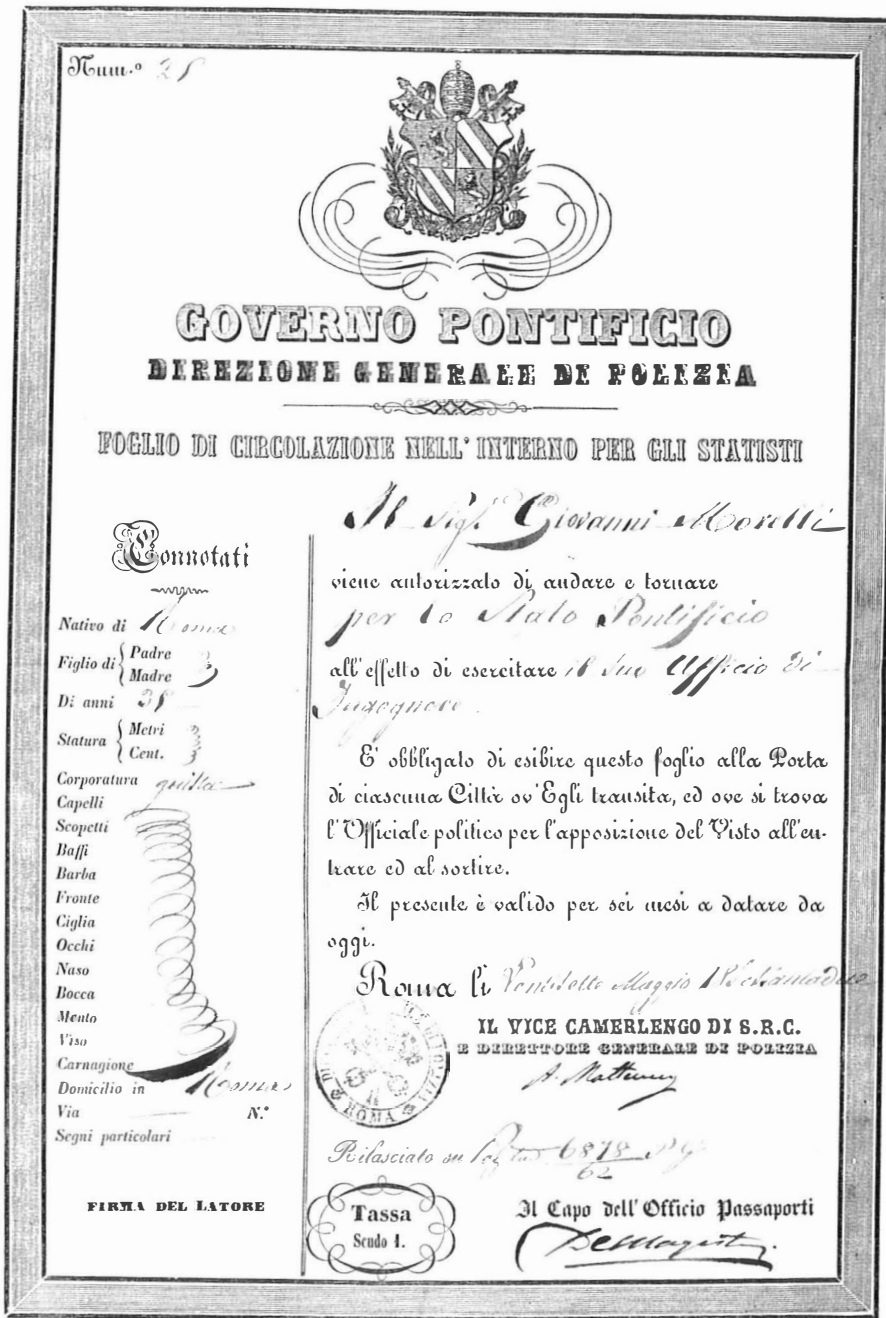 Num.º
GOVERNO PONTIFICIO
DIREZIONE GENERALE DI POLIZIA
FOGLIO DI CIRCOLAZIONE NELL' INTERNO PER GLI STATISTI
Connotati
Nativo di Roma
Figlio di { Padre
Madre
Di anni
Statura { Metri
Cent.
Corporatura giusta
Capelli
Scopetti
Baffi
Barba
Fronte
Ciglia
Occhi
Naso
Bocca
Mento
Viso
Carnagione
Domicilio in Roma
Via N.º
Segni particolari
FIRMA DEL LATORE
Il Sig.r Giovanni Morelli
viene autorizzato di andare e tornare
per lo Stato Pontificio
all'effetto di esercitare il suo Ufficio di
Ingegnere
E' obbligato di esibire questo foglio alla Porta
di ciascuna Città ov'Egli transita, ed ove si trova
l'Officiale politico per l'apposizione del Visto all'en-
trare ed al sortire.
Il presente è valido per sei mesi a datare da
oggi.
Roma li Maggio
IL VICE CAMERLENGO DI S.R.C.
E DIRETTORE GENERALE DI POLIZIA
A. Matteucci
ROMA
Rilasciato su 6878
62
Tassa
Scudo 1.
Il Capo dell'Officio Passaporti